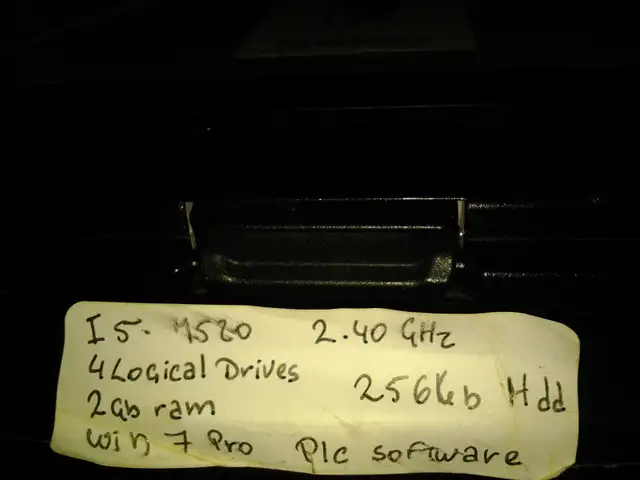 I5. M520 2.40 GHz
4 Logical Drives 256Gb Hdd
2Gb ram
Win 7 Pro Plc software